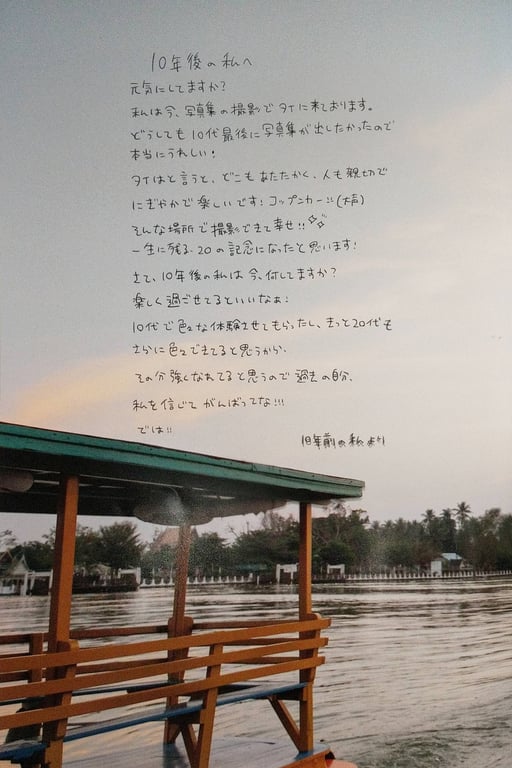 10年後の私へ
元気にしてますか?
私は今、写真集の撮影でタイに来ております。
どうしても10代最後に写真集が出したかったので
本当にうれしい!
タイはと言うと、どこもあたたかく、人も親切で
にぎやかで楽しいです!コップンカー!!(大声)
そんな場所で撮影できて幸せ!!
一生に残る20の記念になったと思います!
さて、10年後の私は今、何してますか?
楽しく過ごせてるといいなぁ!
10代で色々な体験させてもらったし、きっと20代も
さらに色々できてると思うから、
その分強くなれてると思うので過去の自分、
私を信じてがんばってな!!!
では!!
10年前の私より